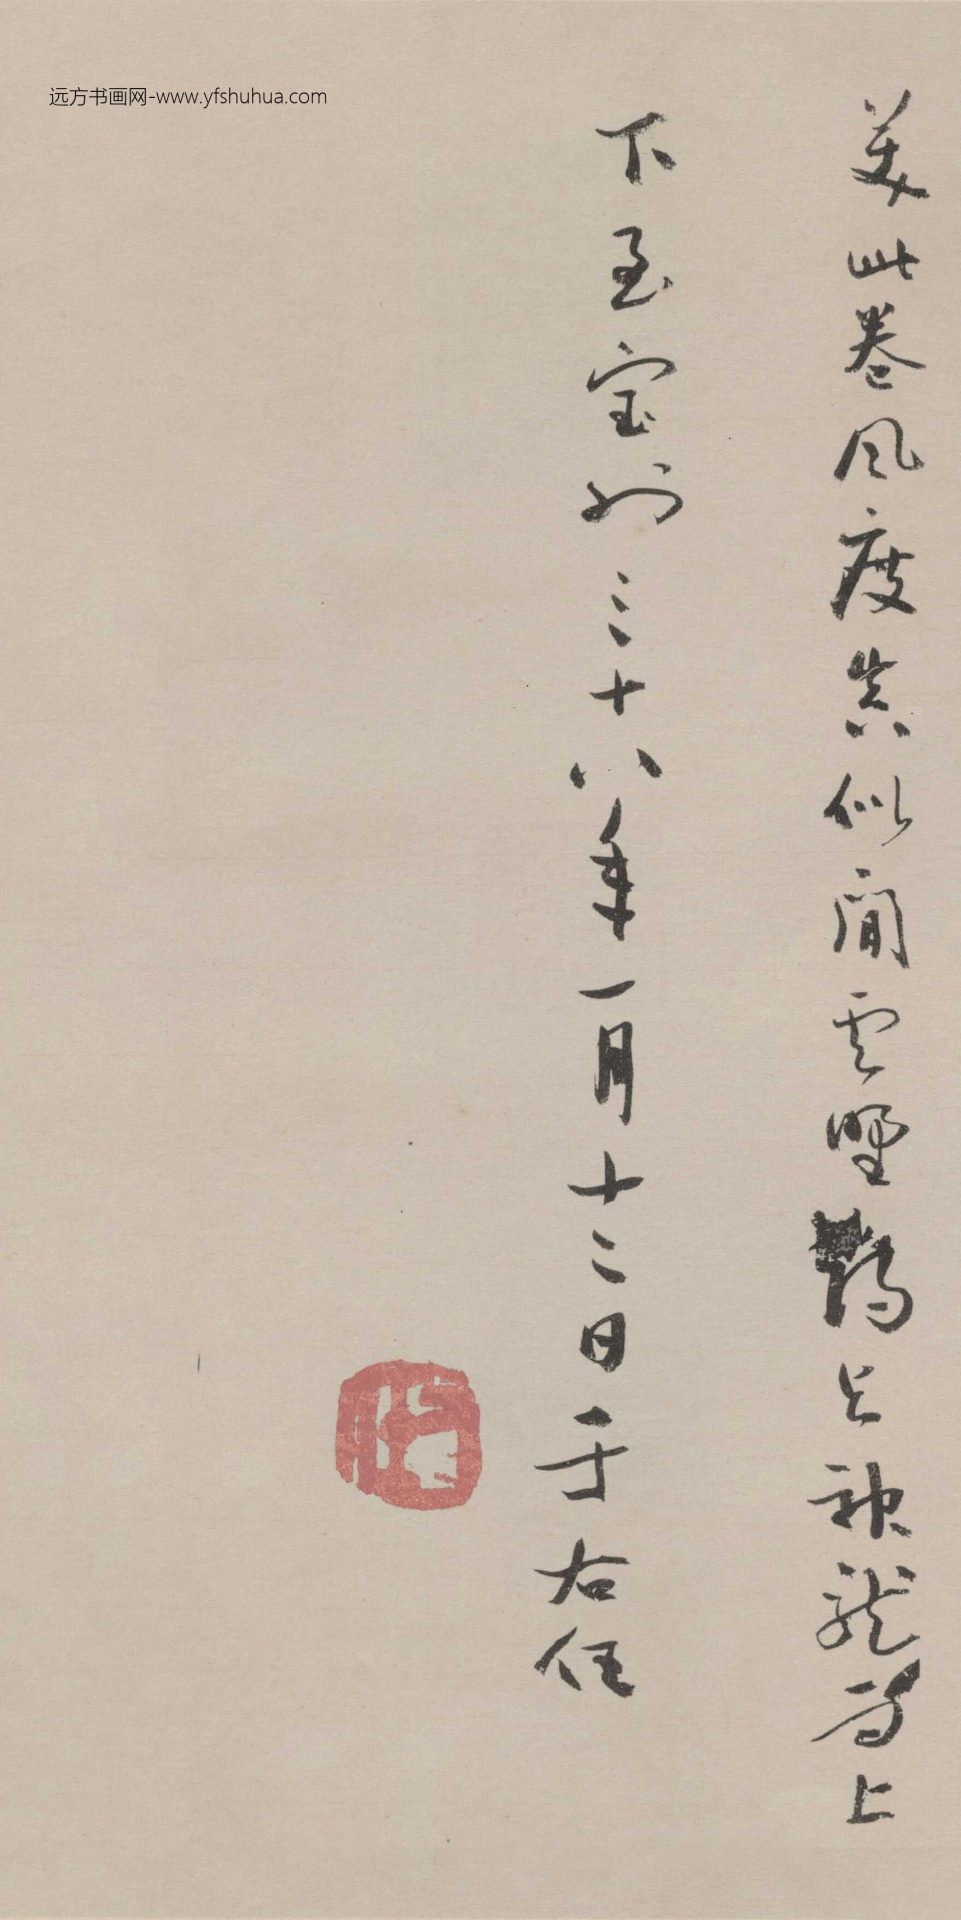 远方书画网-www.yfshuhua.com
美此卷风度真似闲云野鹤与神龙为上
下至宝也三十八年一月十二日于右任